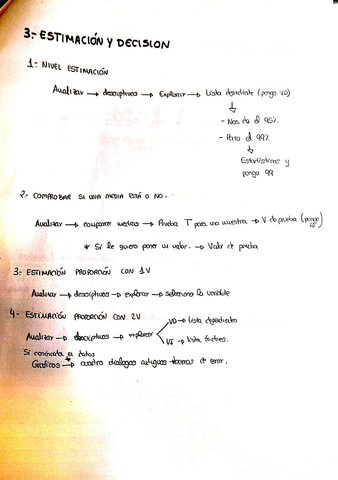 3.- ESTIMACIÓN Y DECISION
1.- NIVEL ESTIMACIÓN
Analizar → descriptivos → Explorar → lista dependiente (pongo VD)
↓
- Nos da el 95%
- Para el 99%
↓
Estadísticos y
pongo 99
2.- COMPROBAR SI UNA MEDIA ESTÁ O NO.
Analizar → comparar medias → Prueba T para una muestra → V. de prueba (pongo
* Si le quiero poner un valor. → Valor de prueba
3.- ESTIMACIÓN PROPORCIÓN CON 1V
Analizar → descriptivos → explorar → selecciono la variable
4.- ESTIMACIÓN PROPORCIÓN CON 2V
VD → lista dependientes
Analizar → descriptivos → explorar
VI → lista factores.
Si contrasta
Gráficos → cuadro diálogos antiguos → barras de error.